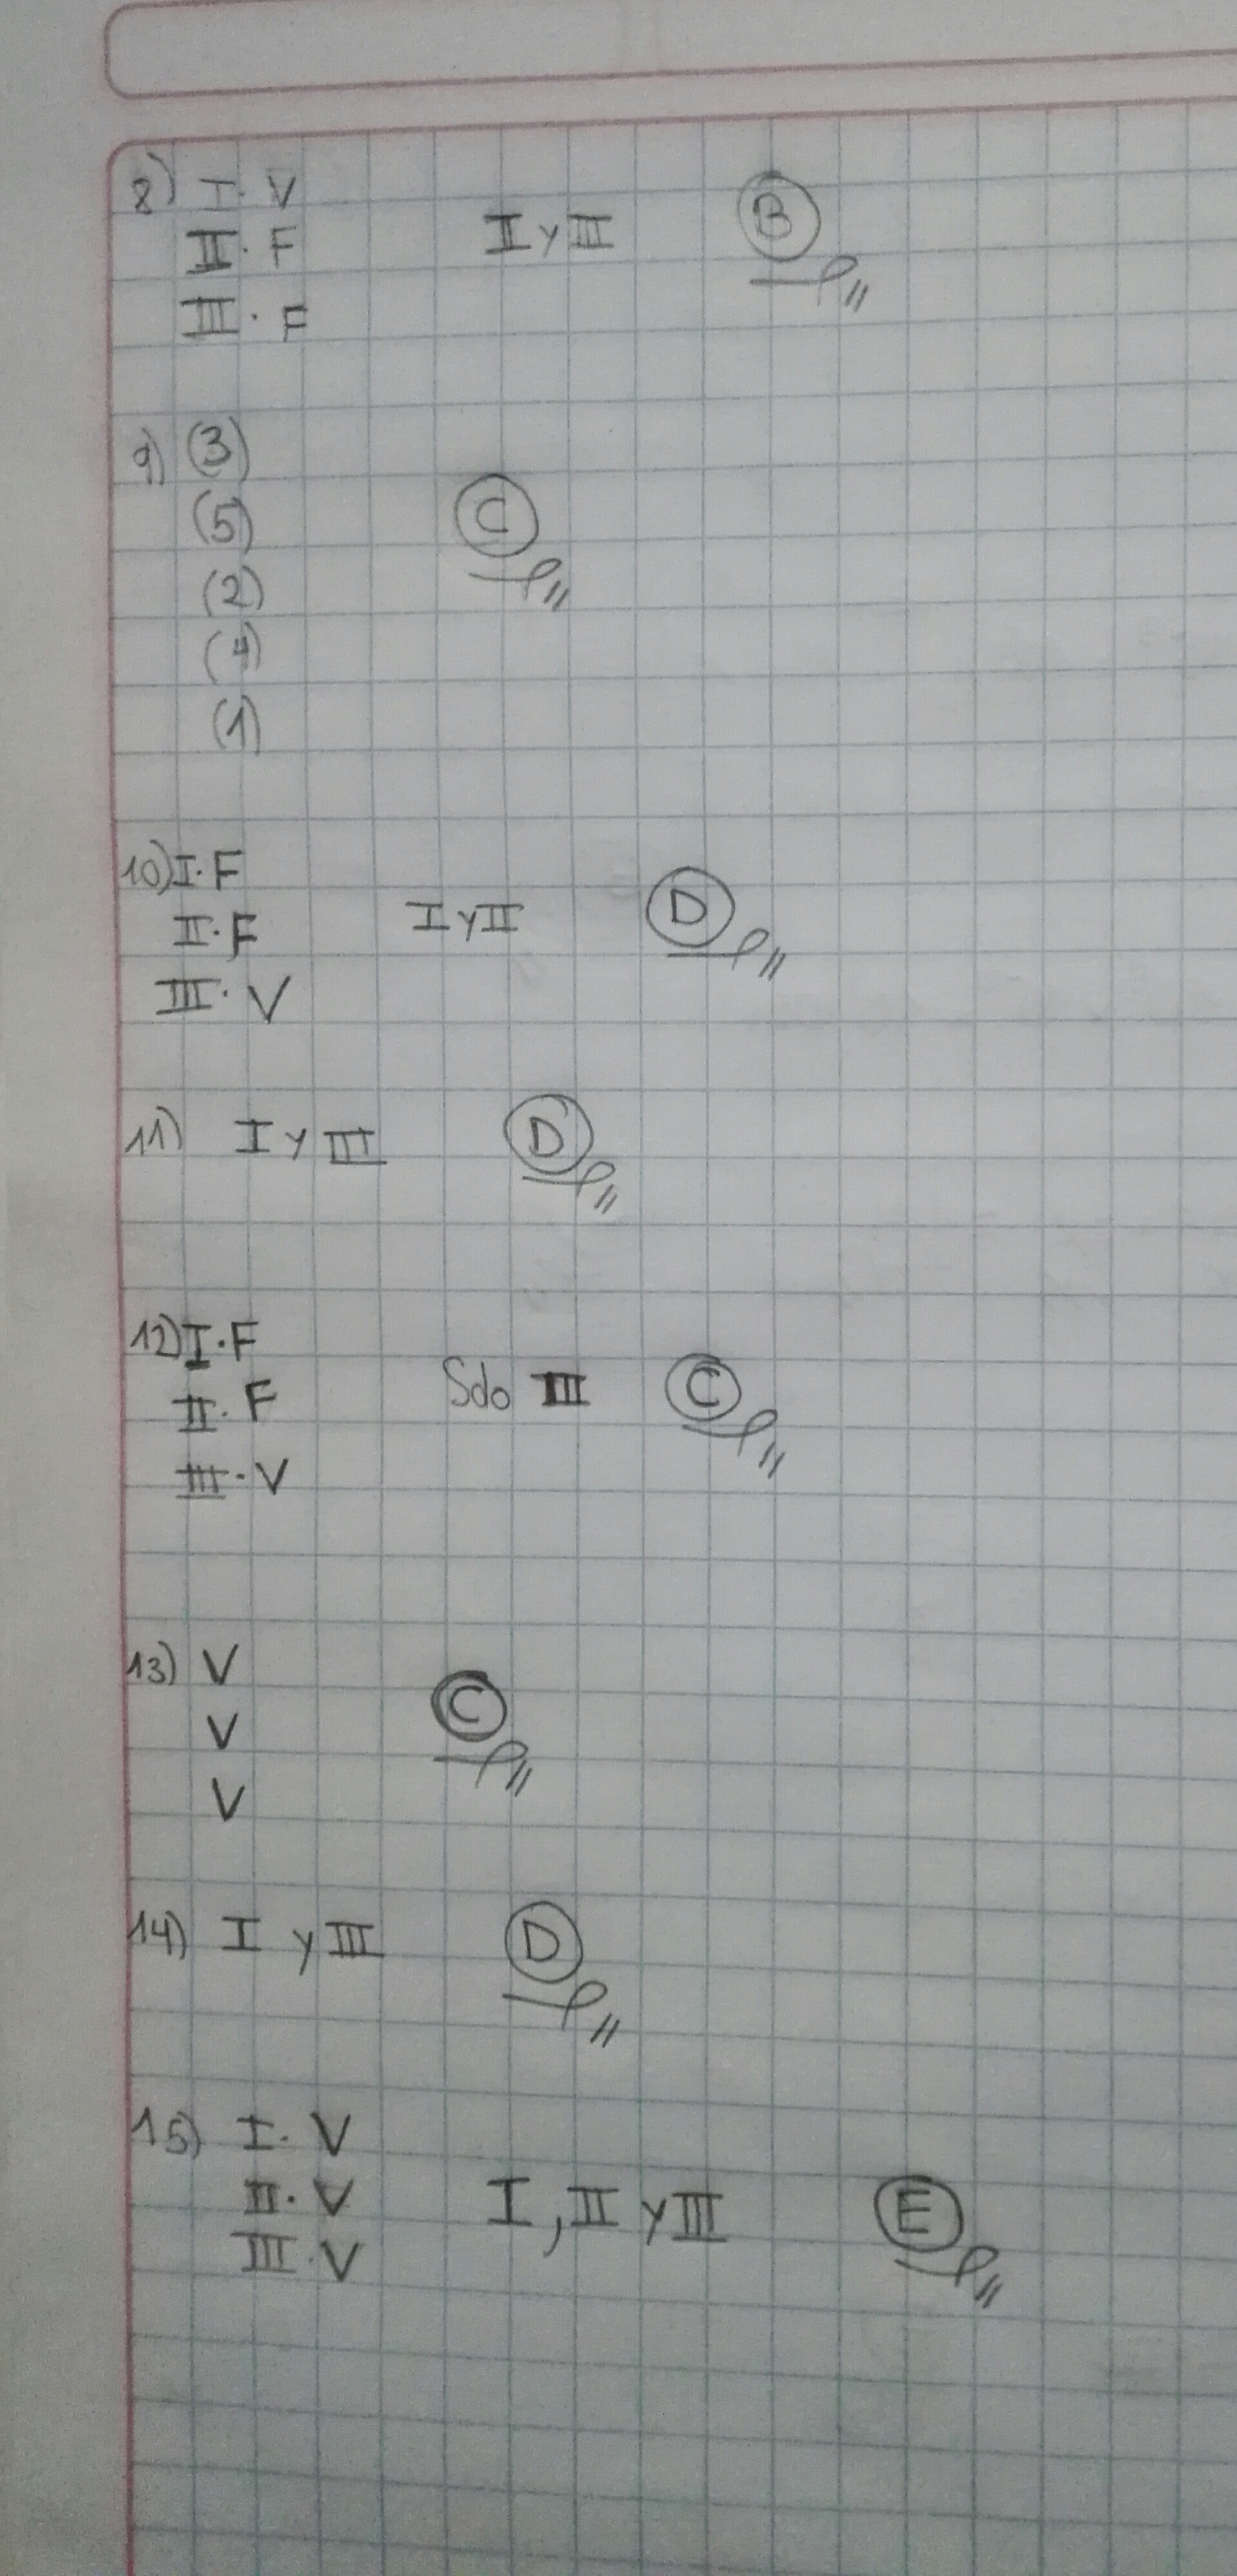 8) I. V
II. F
II y III
B
III. F
9) (3)
(5)
C
(2)
(4)
(1)
10) I. F
II. F
I y II
D
III. V
11) I y III
D
12) I. F
II. F
Solo III
C
III. V
13) V
V
C
V
14) I y III
D
15) I. V
II. V
I, II y III
E
III. V